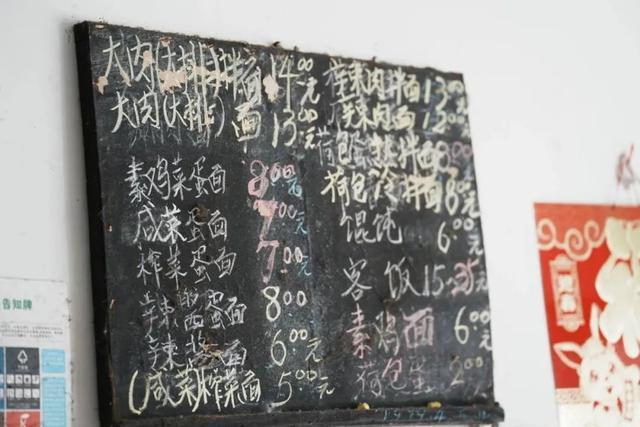 大肉(大排)拌面 14.00元
大肉(大排)面 13.00元
素鸡菜蛋面 8.00元
咸菜蛋面 7.00元
榨菜蛋面 7.00元
辛辣 蛋面 8.00
辛辣 面 6.00元
(咸菜)榨菜面 5.00元
辣肉拌面 13.00元
辣肉面 12.00元
荷包蛋 拌面 8.00
荷包冷拌面 8.00元
馄饨 6.00元
客饭 15. 元
素鸡面 6.00元
荷包蛋 2.00元
告知牌